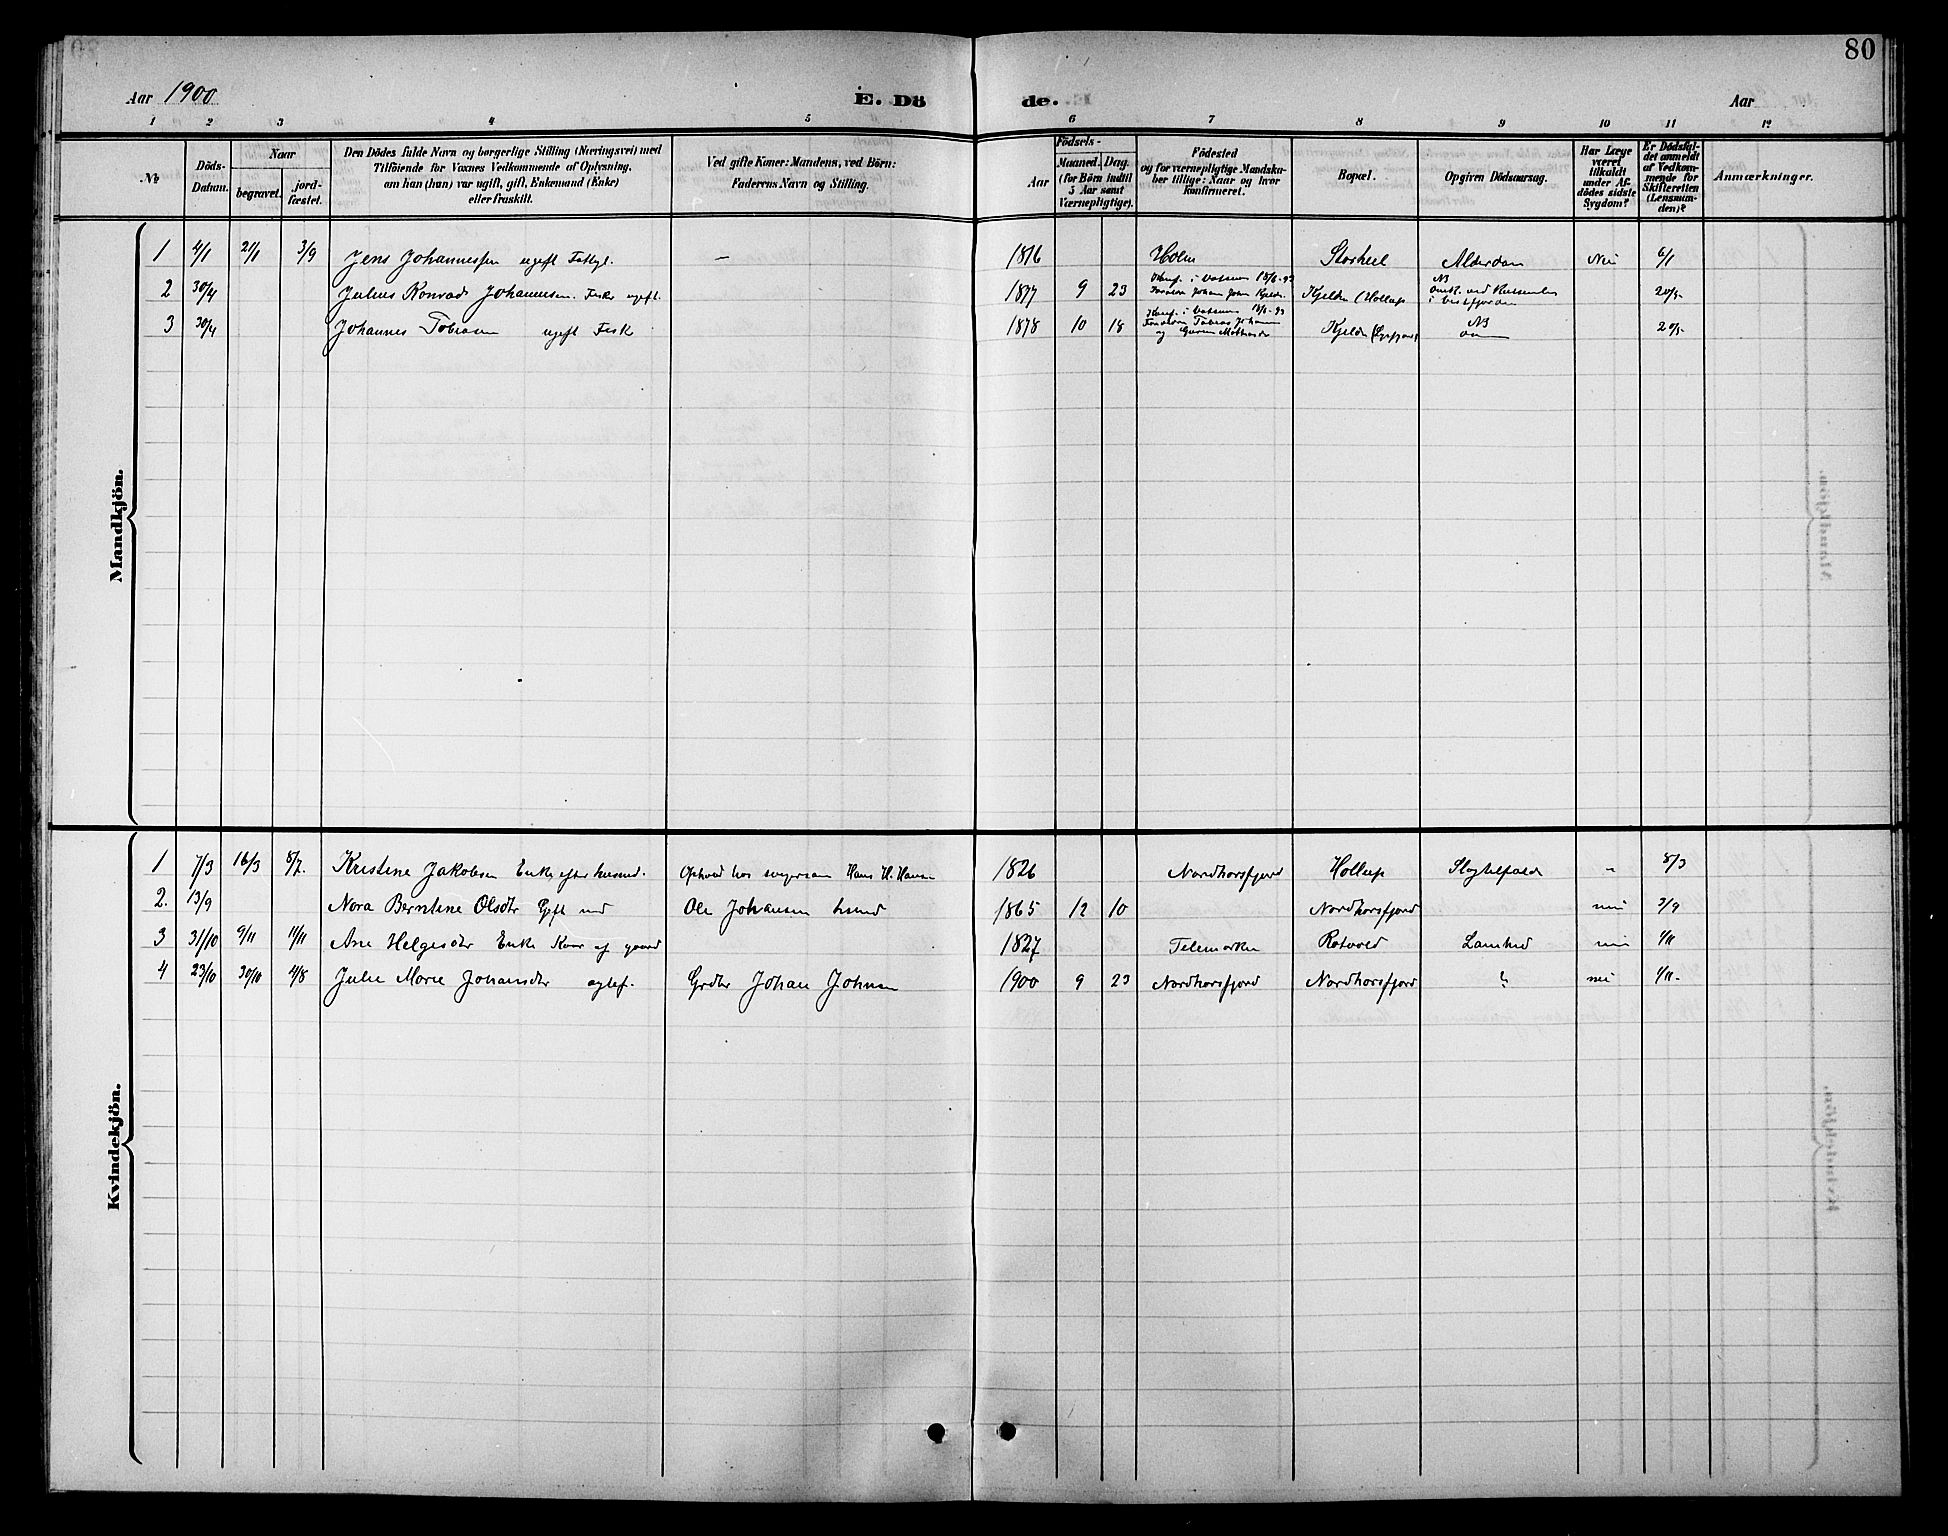 80
Aar 1900
E. Dö de.
Aar
1 2 3 4 5 6 7 8 9 10 11 12
No
Döds-Datum.
Naar
begravet.
jord-fæstet.
Den Dödes fulde Navn og borgerlige Stilling (Næringsvei) med
Tilföiende for Voxnes Vedkommende af Oplysning,
om han (hun) var ugift, gift, Enkemand (Enke)
eller fraskilt.
Ved gifte Koner: Mandens, ved Börn:
Faderens Navn og Stilling.
Födsels-
Aar
Maaned. Dag.
(for Börn indtil
5 Aar samt
Værnepligtige).
Födested
og for værnepligtige Mandska-
ber tillige: Naar og hvor
konfirmeret.
Bopæl.
Opgiven Dödsaarsag.
Har Læge
været
tilkaldt
under Af-
dödes sidste
Sygdom?
Er Dödsfal-
det anmeldt
af Vedkom-
mende for
Skifteretten
(Lensman-
den)?
Anmærkninger.
Mandkjön.
1 4/1 21/1 3/9 Jens Johannessen ugift — 1816 Holm Alderdom Nei 6/1
2 30/4 Julius Konrad Johannesen. Fisker ugift. 1877 9 23 Konf. i 18/6-93 Kjelden (Hollup NB i Vestfjorden 20/5-
3 30/4 Johannes Tobiasen ugift Fisk 1878 10 18 Konf. i Tobias og Kjelden NB 20/5-
Kvindekjön.
1 7/3 16/3 8/7. Kristine Jakobsen Enke efter husmd. Ophold hos svigersøn Hans H. Hansen 1826 Nordhorsfjord Hollup „ 8/3
2. 13/9 Nora Berntine Olsdtr Gift med Ole Johansen 1865 12 10 Nordhorsfjord nei 3/9
3 31/10 9/11 11/11 Ane Helgesdtr Enke Kaar af gaard 1827 Telemarken Rotvold nei 1/11
4 23/10 30/10 4/8 Julie Marie Johansdtr Grdbr Johan Johnsen 1900 9 23 Nordhorsfjord Nordhorsfjord ? nei 1/11-